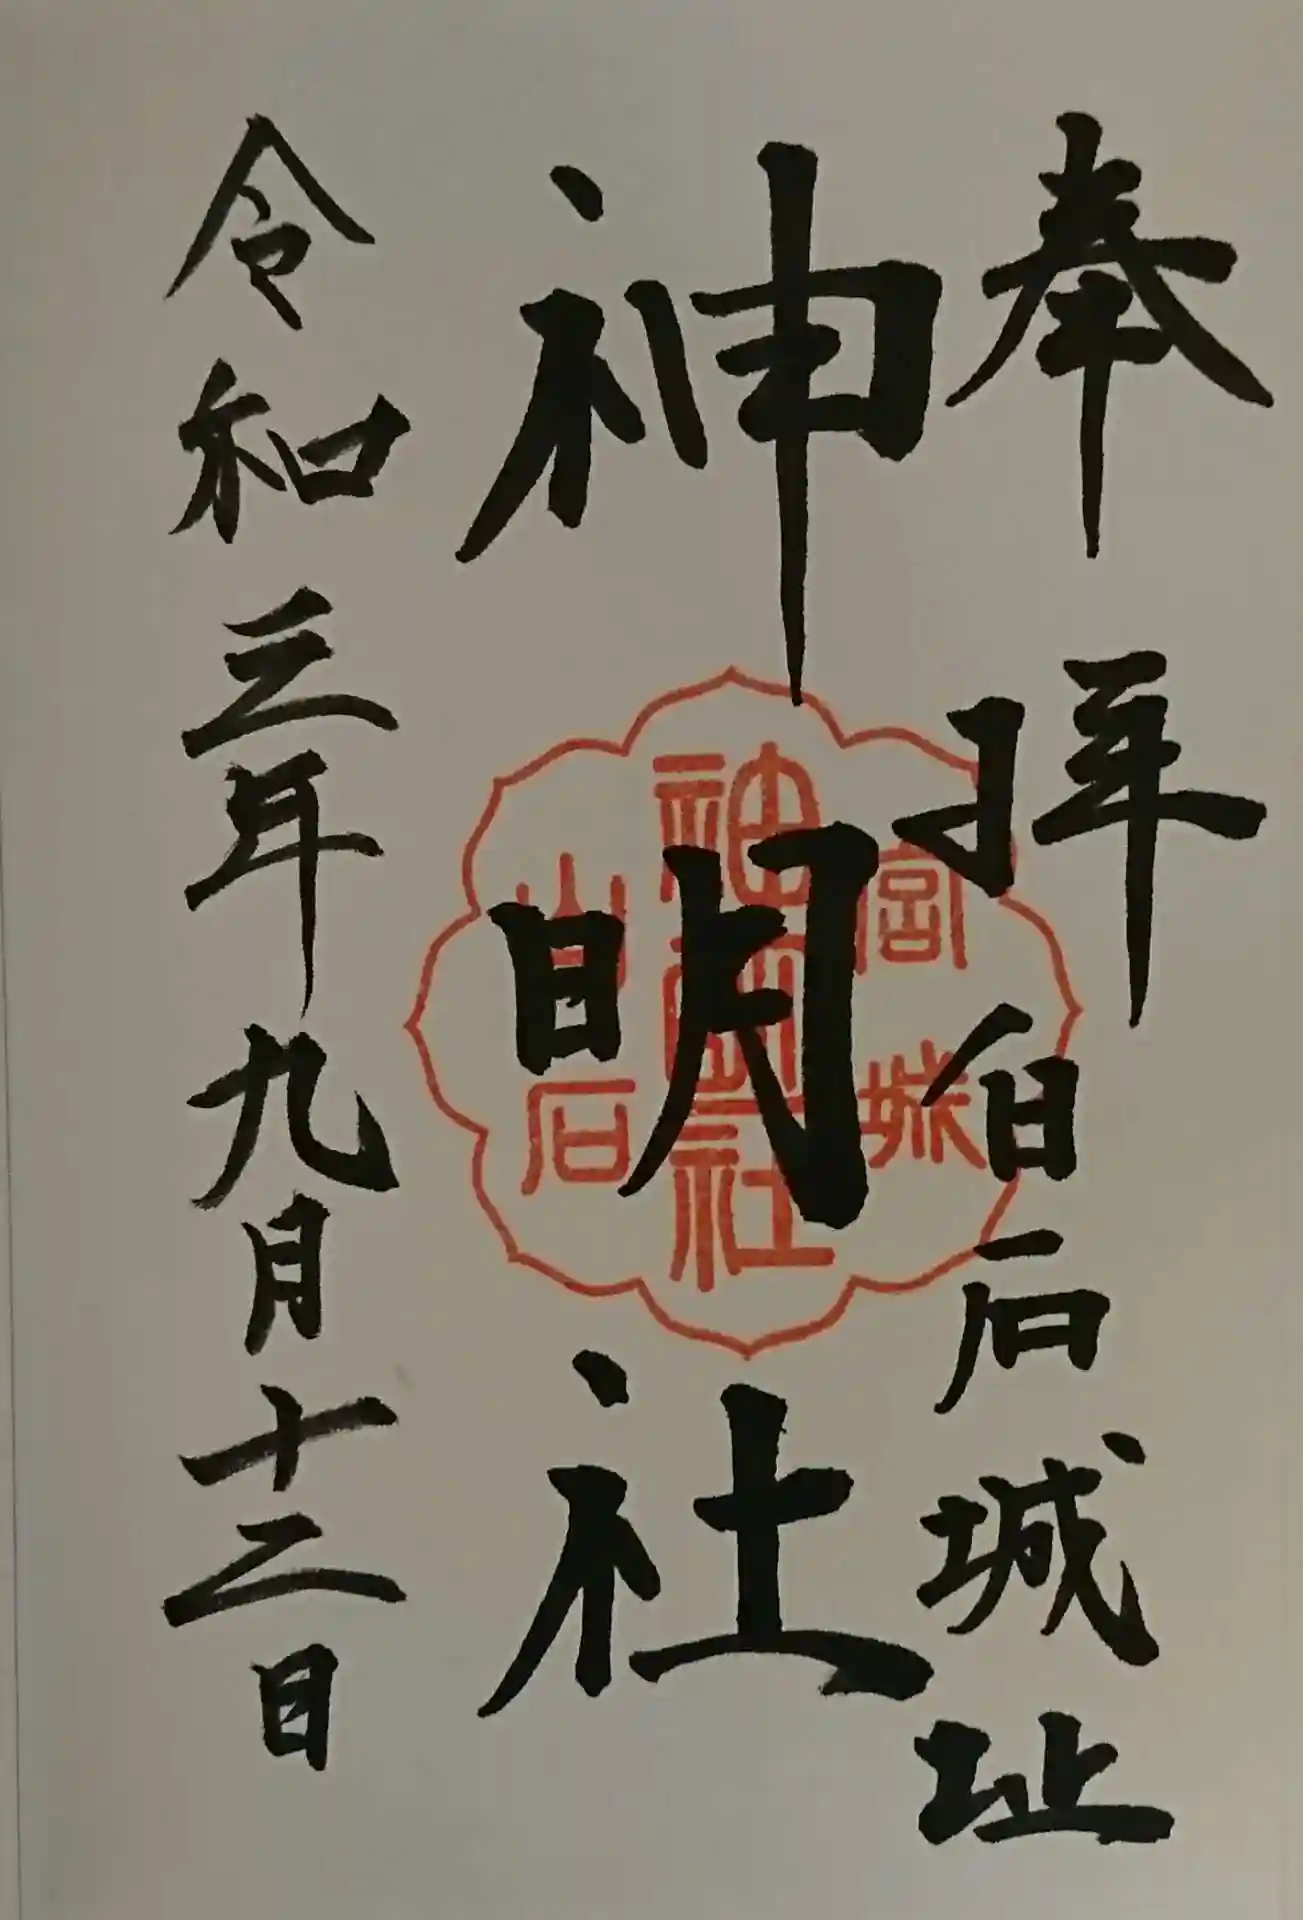 奉拝 白石城址
神明社
令和三年九月十二日
宮城
神明社
白石